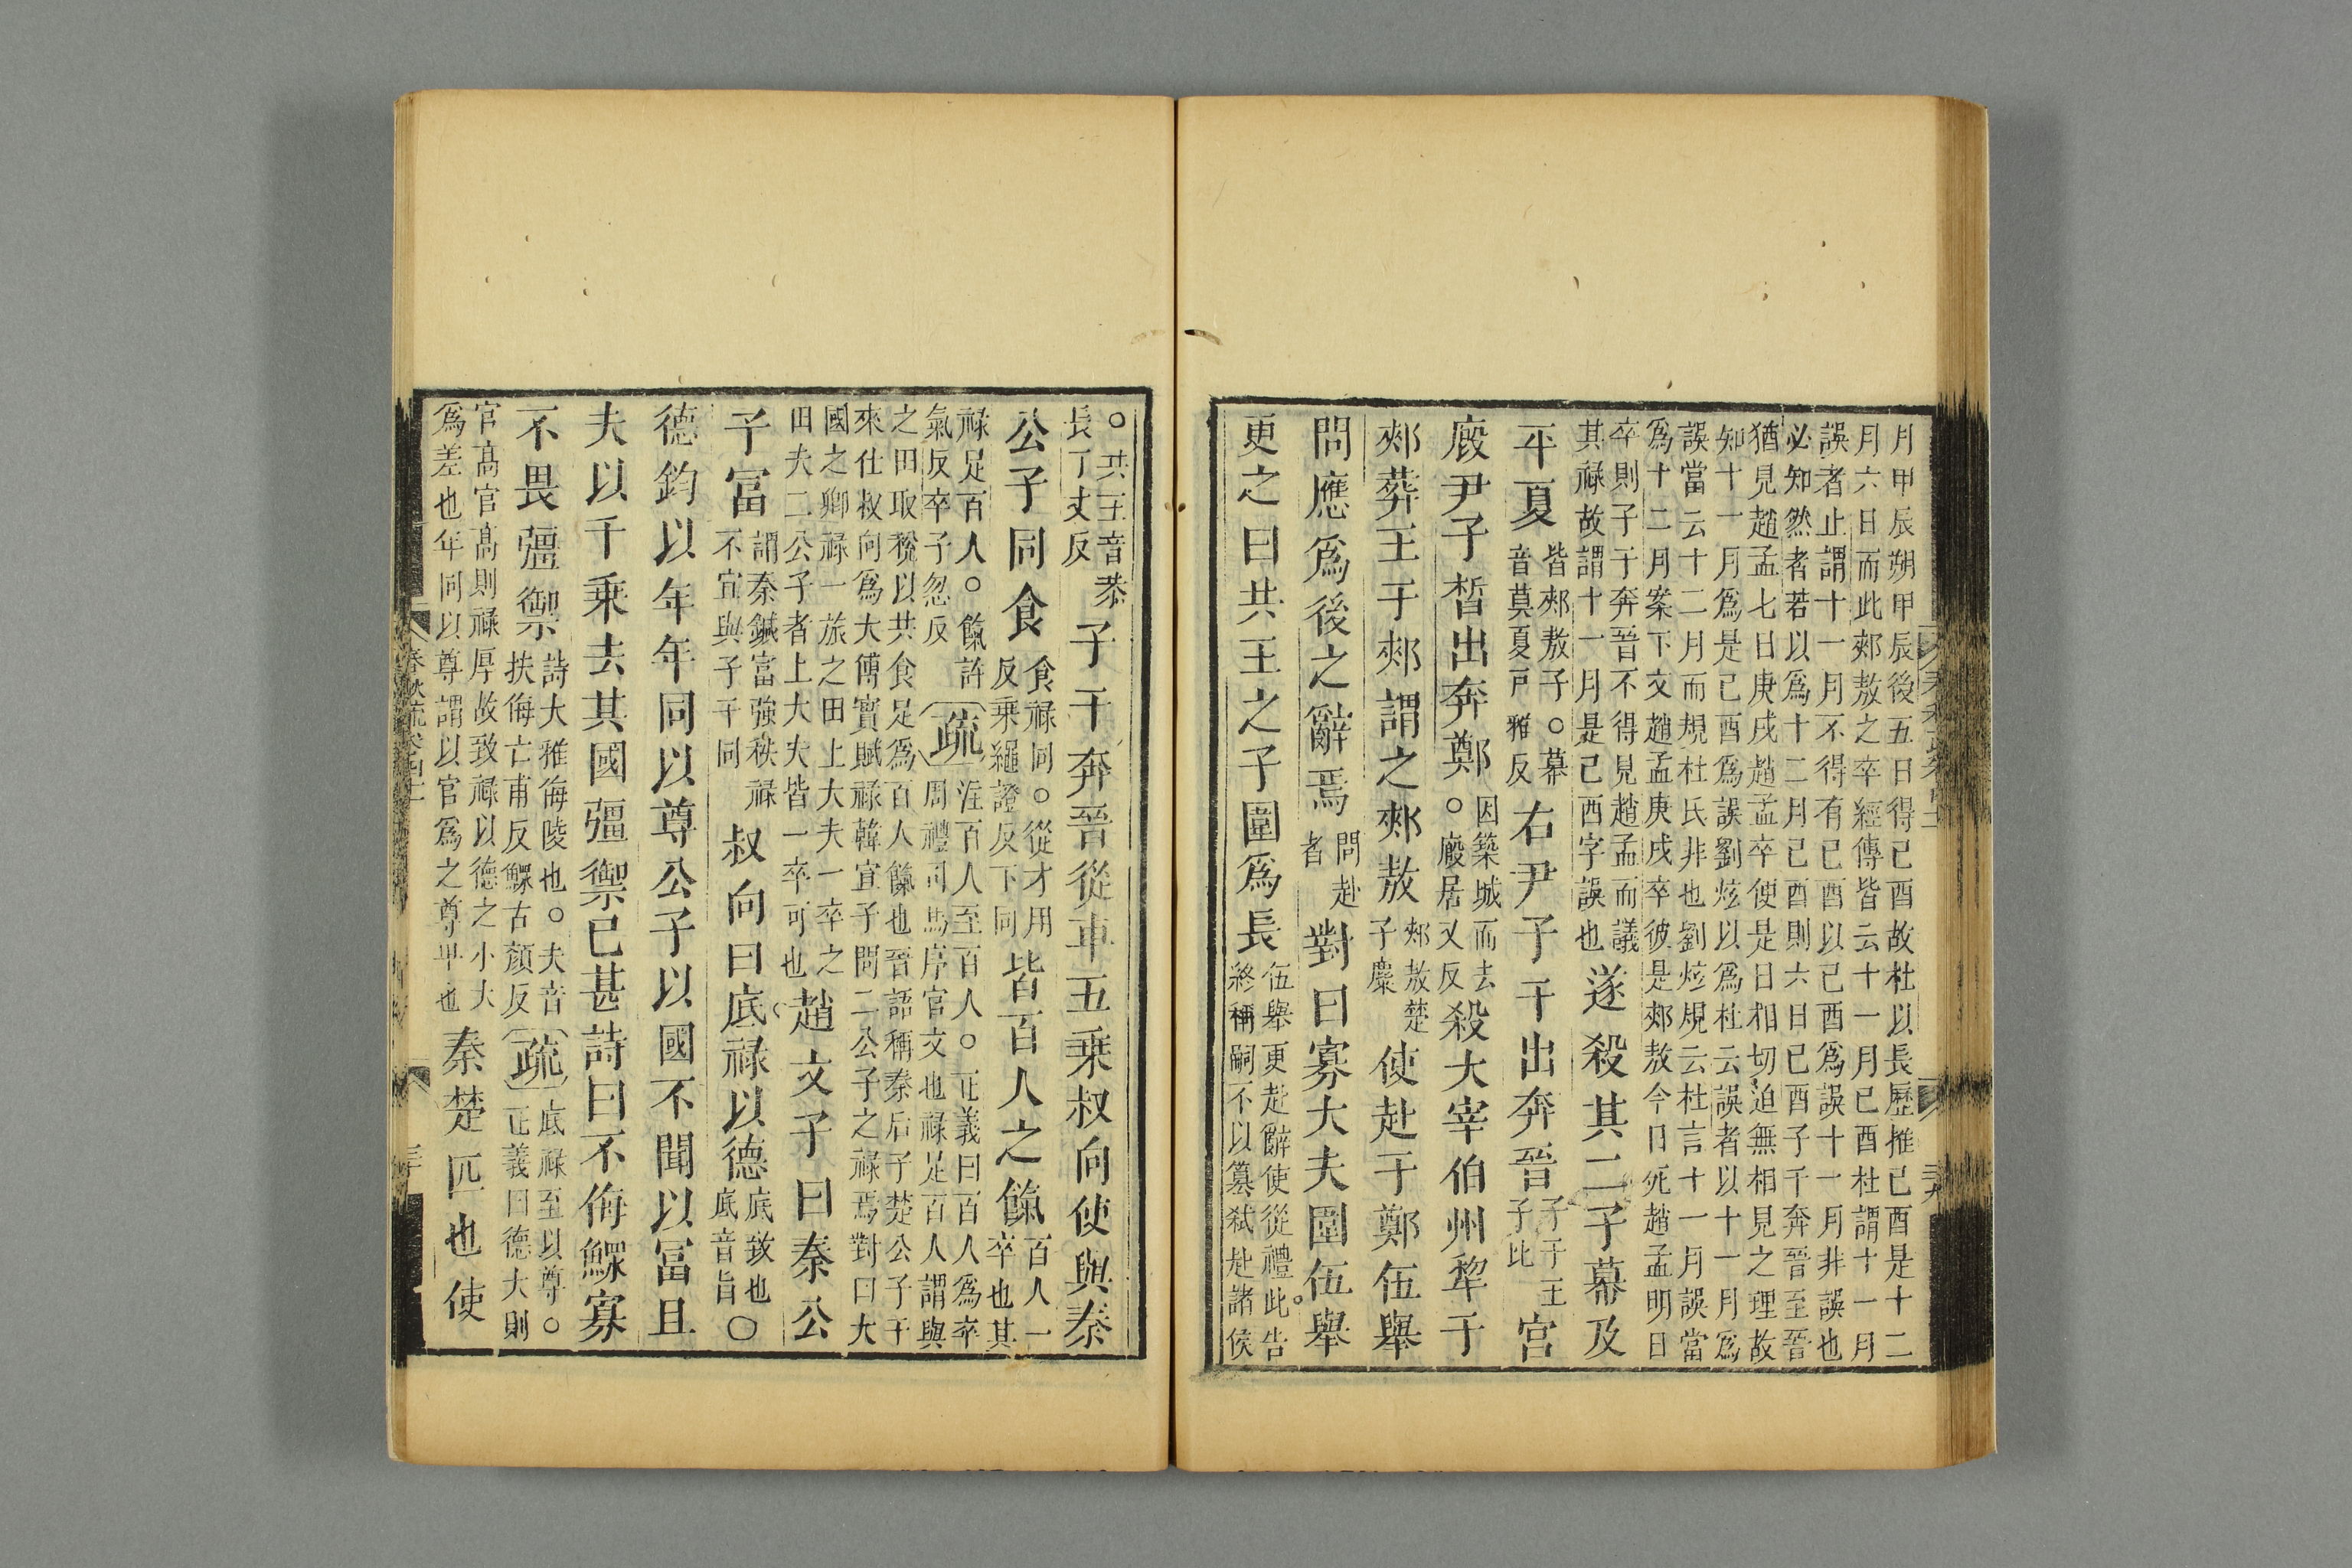 月甲辰朔甲辰後五日得己酉故杜以長歷推己酉是十二
月六日而此郟敖之卒經傳皆云十一月己酉杜謂十一月
誤者止謂十一月不得有己酉以己酉為誤十一月非誤也
必知然者若以為十二月己酉則六日己酉子干奔晉至晉
猶見趙孟七日庚戌趙孟卒便是日相切迫無相見之理故
知十一月為是己酉為誤劉炫以為杜云誤者以十一月為
誤當云十二月而規杜氏非也劉炫規云杜言十一月誤當
為十二月案下文趙孟庚戌卒彼是郟敖今日死趙孟明日
卒則子干奔晉不得見趙孟而議
其祿故謂十一月是己酉字誤也
遂殺其二子幕及
平夏
皆郟敖子○幕
音莫夏戸雅反
右尹子干出奔晉
子干王
子比
宮
廄尹子晳出奔鄭
因築城而去
○廄居又反
殺大宰伯州犂于
郟葬王于郟謂之郟敖
郟敖楚
子麋
使赴于鄭伍舉
問應為後之辭焉
問赴
者
對曰寡大夫圍伍舉
更之曰共王之子圍為長
伍舉更赴辭使從禮此告
終稱嗣不以簒弒赴諸侯
○共王音恭
長丁丈反
子干奔晉從車五乗叔向使與秦
公子同食
食祿同○從才用
反乗繩證反下同
皆百人之餼
百人一
卒也其
祿足百人○餼許
氣反卒子忽反
疏
注百人至百人○正義曰百人為卒
周禮司馬序官文也祿足百人謂與
之田取稅以共食足為百人餼也晉語稱秦后子楚公子干
來仕叔向為大傅實賦祿韓宣子問二公子之祿焉對曰大
國之卿祿一旅之田上大夫一卒之
田夫二公子者上大夫皆一卒可也
趙文子曰秦公
子富
謂秦鍼富強秩祿
不宜與子干同
叔向曰底祿以德
底致也
底音旨
○
德鈞以年年同以尊公子以國不聞以富且
夫以千乗去其國彊禦已甚詩曰不侮鰥寡
不畏彊禦
詩大雅侮陵也○夫音
扶侮亡甫反鰥古頑反
疏
底祿至以尊○
正義曰德大則
官高官高則祿厚故致祿以德之小大
為差也年同以尊謂以官為之尊卑也
秦楚匹也使